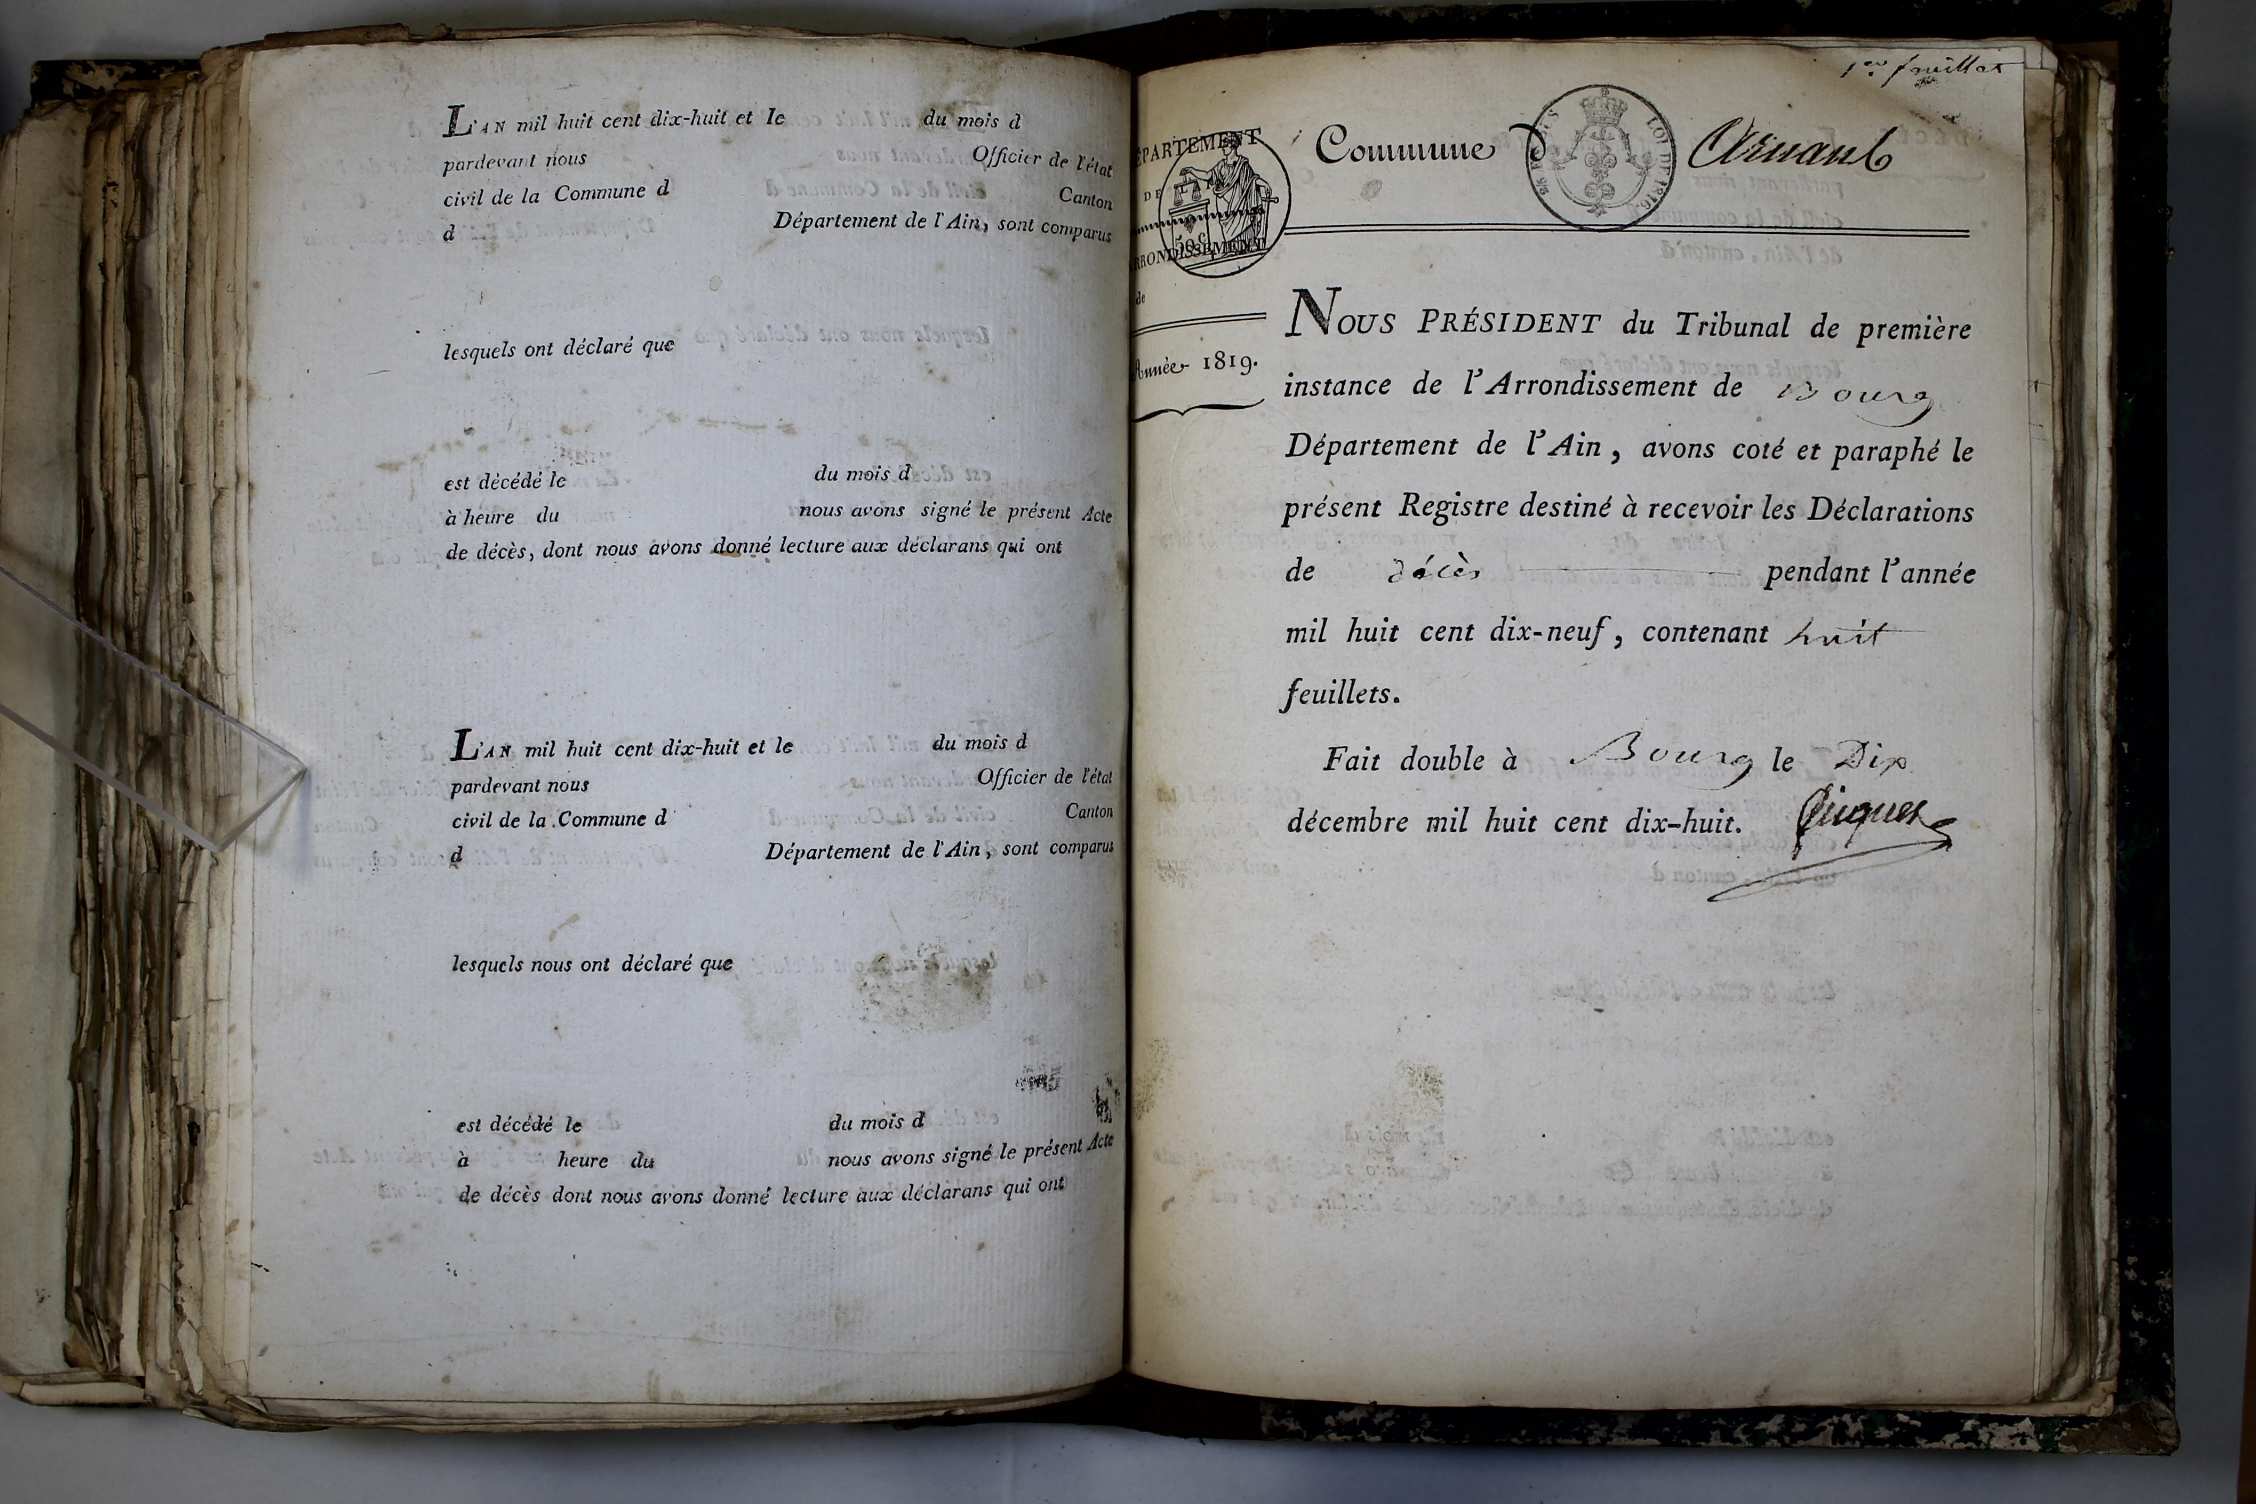 L'AN mil huit cent dix-huit et le du mois d
pardevant nous Officier de l'état
civil de la Commune d Canton
d Département de l'Ain, sont comparus
lesquels ont déclaré que
est décédé le du mois d
à heure du nous avons signé le présent Acte
de décès, dont nous avons donné lecture aux déclarans qui ont
L'AN mil huit cent dix-huit et le du mois d
pardevant nous Officier de l'état
civil de la Commune d Canton
d Département de l'Ain, sont comparus
lesquels nous ont déclaré que
est décédé le du mois d
à heure du nous avons signé le présent Acte
de décès dont nous avons donné lecture aux déclarans qui ont
1er feuillet
DÉPARTEMENT
DE
50 c.
ARRONDISSEMENT
de
Année 1819.
Commune d
LOI DE 1816.
NOUS PRÉSIDENT du Tribunal de première
instance de l'Arrondissement de Bourg
Département de l'Ain, avons coté et paraphé le
présent Registre destiné à recevoir les Déclarations
de décès pendant l'année
mil huit cent dix-neuf, contenant huit
feuillets.
Fait double à Bourg le Dix
décembre mil huit cent dix-huit.